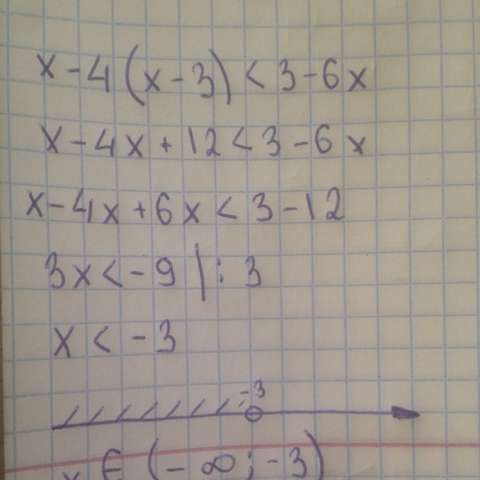 x-4(x-3)<3-6x
x-4x+12<3-6x
x-4x+6x<3-12
3x<-9 |:3
x<-3
-3
x ∈ (-∞; -3)